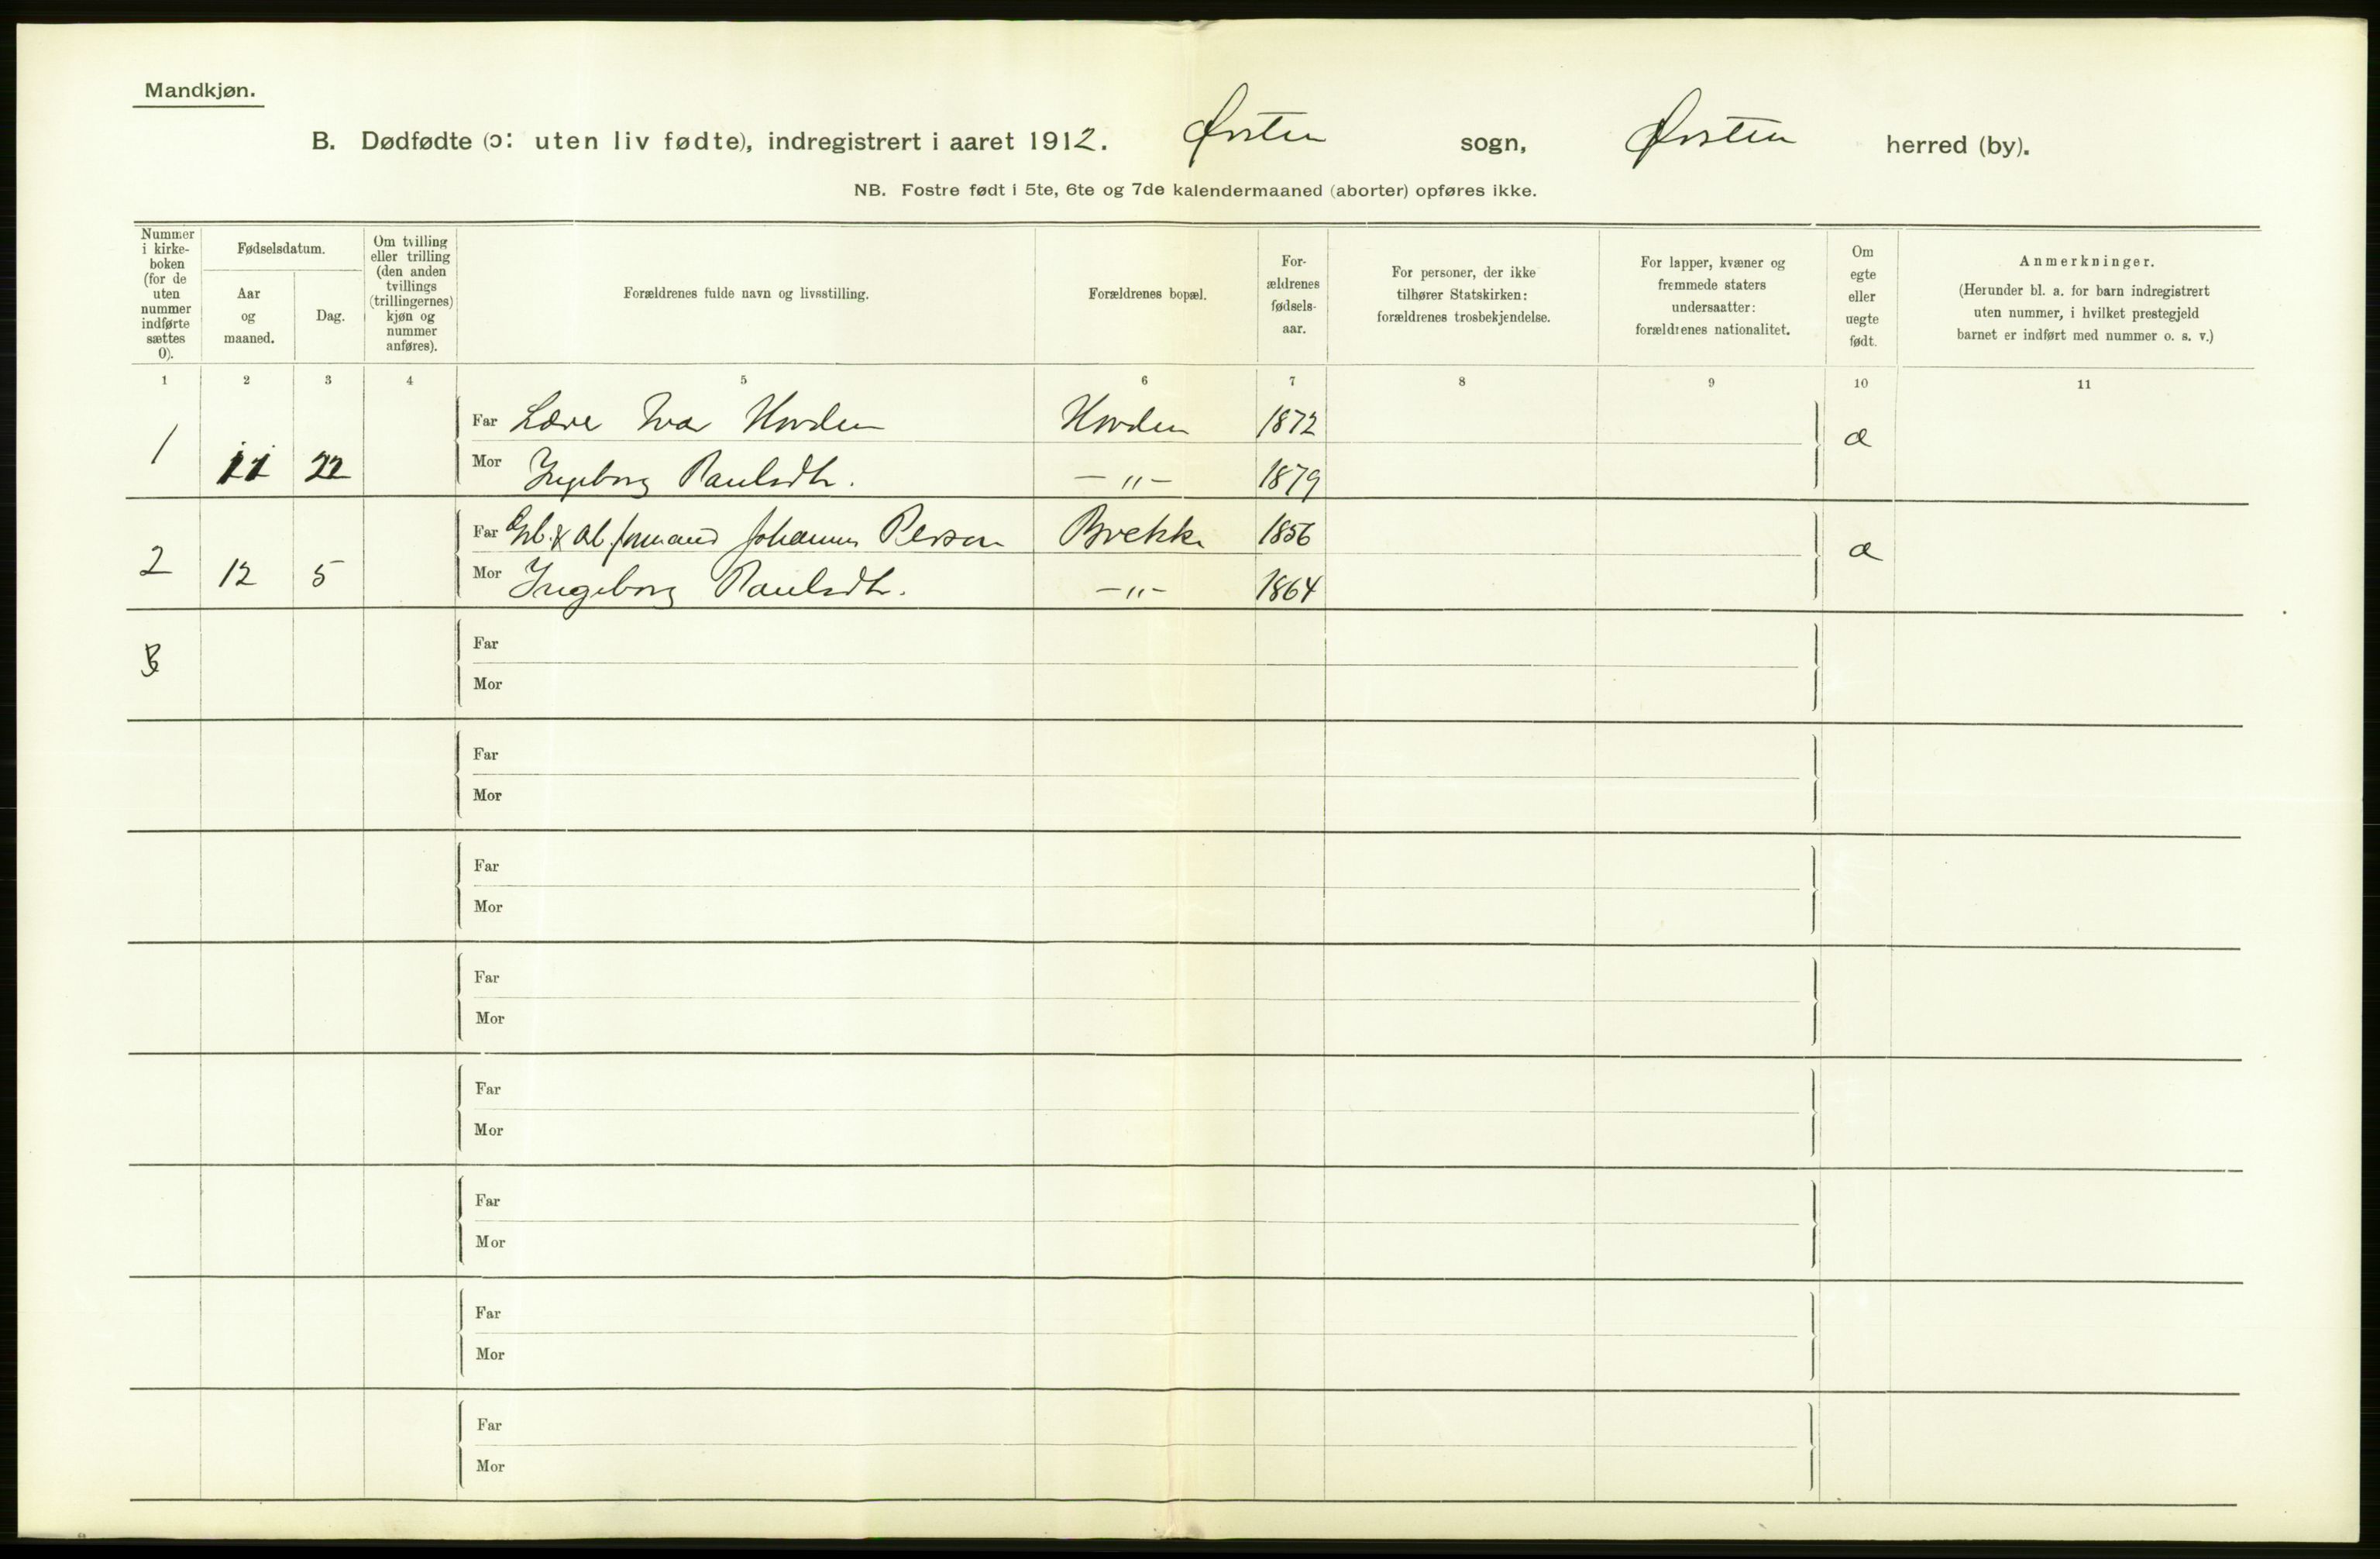 Mandkjøn.
B. Dødfødte (ɔ: uten liv fødte), indregistrert i aaret 1912. Ørsten sogn, Ørsten herred (by).
NB. Fostre født i 5te, 6te og 7de kalendermaaned (aborter) opføres ikke.
Nummer
i kirke-
boken
(for de
uten
nummer
indførte
sættes
0).
Fødselsdatum.
Aar
og
maaned.
Dag.
Om tvilling
eller trilling
(den anden
tvillings
(trillingernes)
kjøn og
nummer
anføres).
Forældrenes fulde navn og livsstilling.
Forældrenes bopæl.
For-
ældrenes
fødsels-
aar.
For personer, der ikke
tilhører Statskirken:
forældrenes trosbekjendelse.
For lapper, kvæner og
fremmede staters
undersaatter:
forældrenes nationalitet.
Om
egte
eller
uegte
født.
Anmerkninger.
(Herunder bl. a. for barn indregistrert
uten nummer, i hvilket prestegjeld
barnet er indført med nummer o. s. v.)
1 2 3 4 5 6 7 8 9 10 11
Far Lære Ivar Hovden Hovden 1872
1 11 22 æ
Mor Ingeborg Paulsdtr. — " — 1879
Far Grb. & formand Johannes Person Brekke 1856
2 12 5 æ
Mor Ingeborg Paulsdtr. — " — 1864
Far
3
Mor
Far
Mor
Far
Mor
Far
Mor
Far
Mor
Far
Mor
Far
Mor
Far
Mor